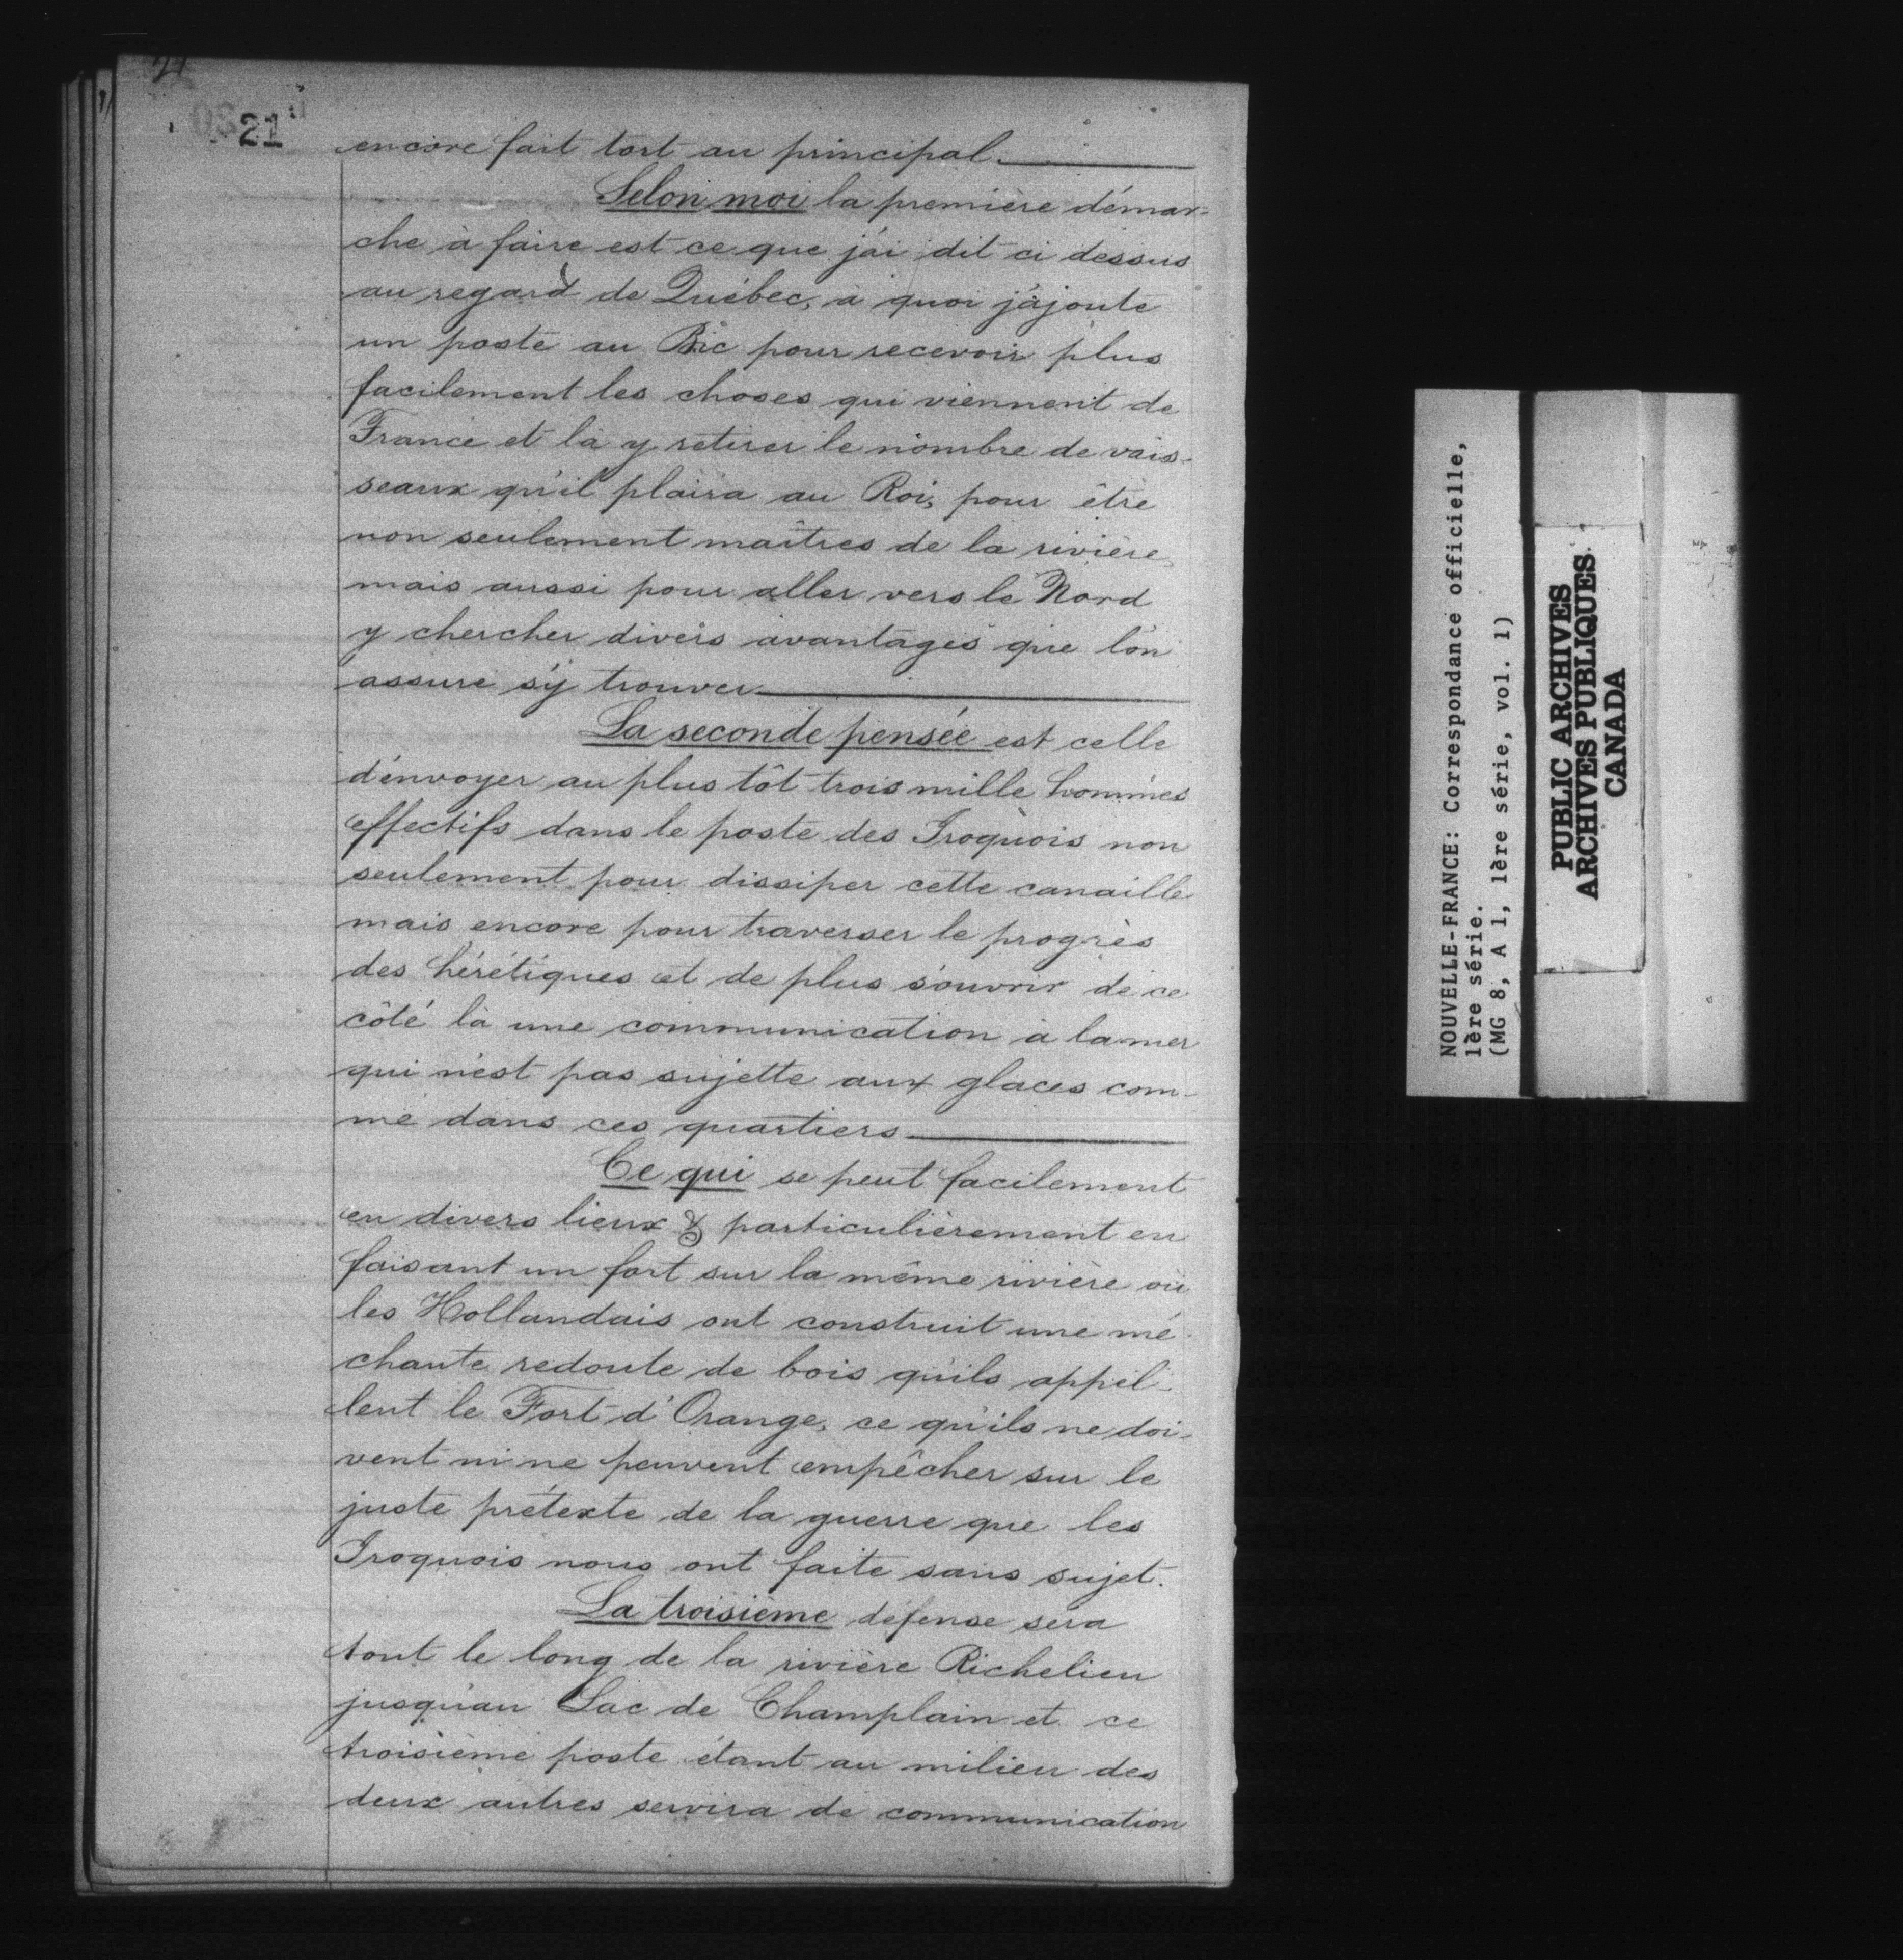 21
21
encore fait tort au principal.
Selon moi la première démar-
che à faire est ce que j'ai dit ci dessus
au regard de Québec, à quoi j'ajoute
un poste au Bic pour recevoir plus
facilement les choses qui viennent de
France et là y retirer le nombre de vais-
seaux qu'il plaira au Roi, pour être
non seulement maîtres de la rivière,
mais aussi pour aller vers le Nord
y chercher divers avantages que l'on
assure s'y trouver.
La seconde pensée est celle
d'envoyer au plus tôt trois mille hommes
effectifs dans le poste des Iroquois non
seulement pour dissiper cette canaille
mais encore pour traverser le progrès
des hérétiques et de plus s'ouvrir de ce
côté là une communication à la mer
qui n'est pas sujette aux glaces com-
me dans ces quartiers.
Ce qui se peut facilement
en divers lieux & particulièrement en
faisant un fort sur la même rivière où
les Hollandais ont construit une mé-
chante redoute de bois qu'ils appel-
lent le Fort d'Orange, ce qu'ils ne doi-
vent ni ne peuvent empêcher sur le
juste prétexte de la guerre que les
Iroquois nous ont faite sans sujet.
La troisième défense sera
tout le long de la rivière Richelieu
jusqu'au Lac de Champlain et ce
troisième poste étant au milieu des
deux autres servira de communication
NOUVELLE-FRANCE: Correspondance officielle,
1ère série.
(MG 8, A 1, 1ère série, vol. 1)
PUBLIC ARCHIVES
ARCHIVES PUBLIQUES
CANADA